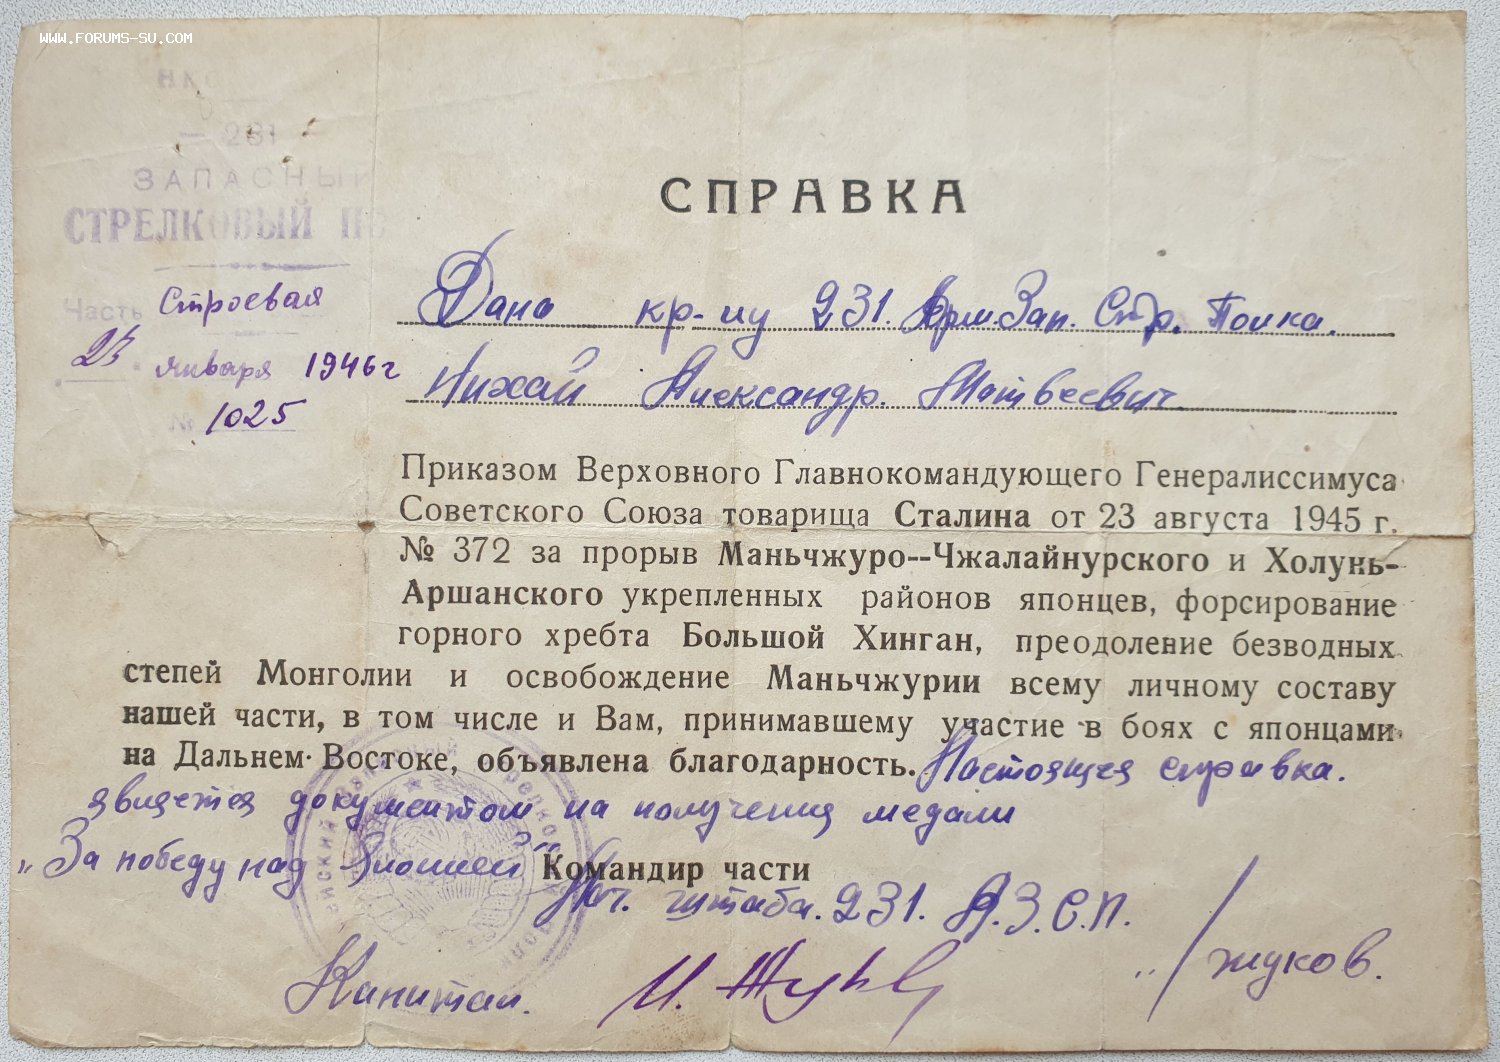 WWW.FORUMS-SU.COM
НК
— 231 —
ЗАПАСНЫЙ
СТРЕЛКОВЫЙ
Часть Строевая
23 января 1946 г
№ 1025
СПРАВКА
Дана кр-цу 231. Арм. Зап. Стр. Полка.
Михай Александр. Матвеевич.
Приказом Верховного Главнокомандующего Генералиссимуса
Советского Союза товарища Сталина от 23 августа 1945 г.
№ 372 за прорыв Маньчжуро--Чжалайнурского и Холунь-
Аршанского укрепленных районов японцев, форсирование
горного хребта Большой Хинган, преодоление безводных
степей Монголии и освобождение Маньчжурии всему личному составу
нашей части, в том числе и Вам, принимавшему участие в боях с японцами
на Дальнем Востоке, объявлена благодарность. Настоящая справка.
является документом на получения медали
„За победу над Японией" Командир части
Нач. штаба. 231. А.З.С.П.
Капитан. И. Жуков /Жуков.